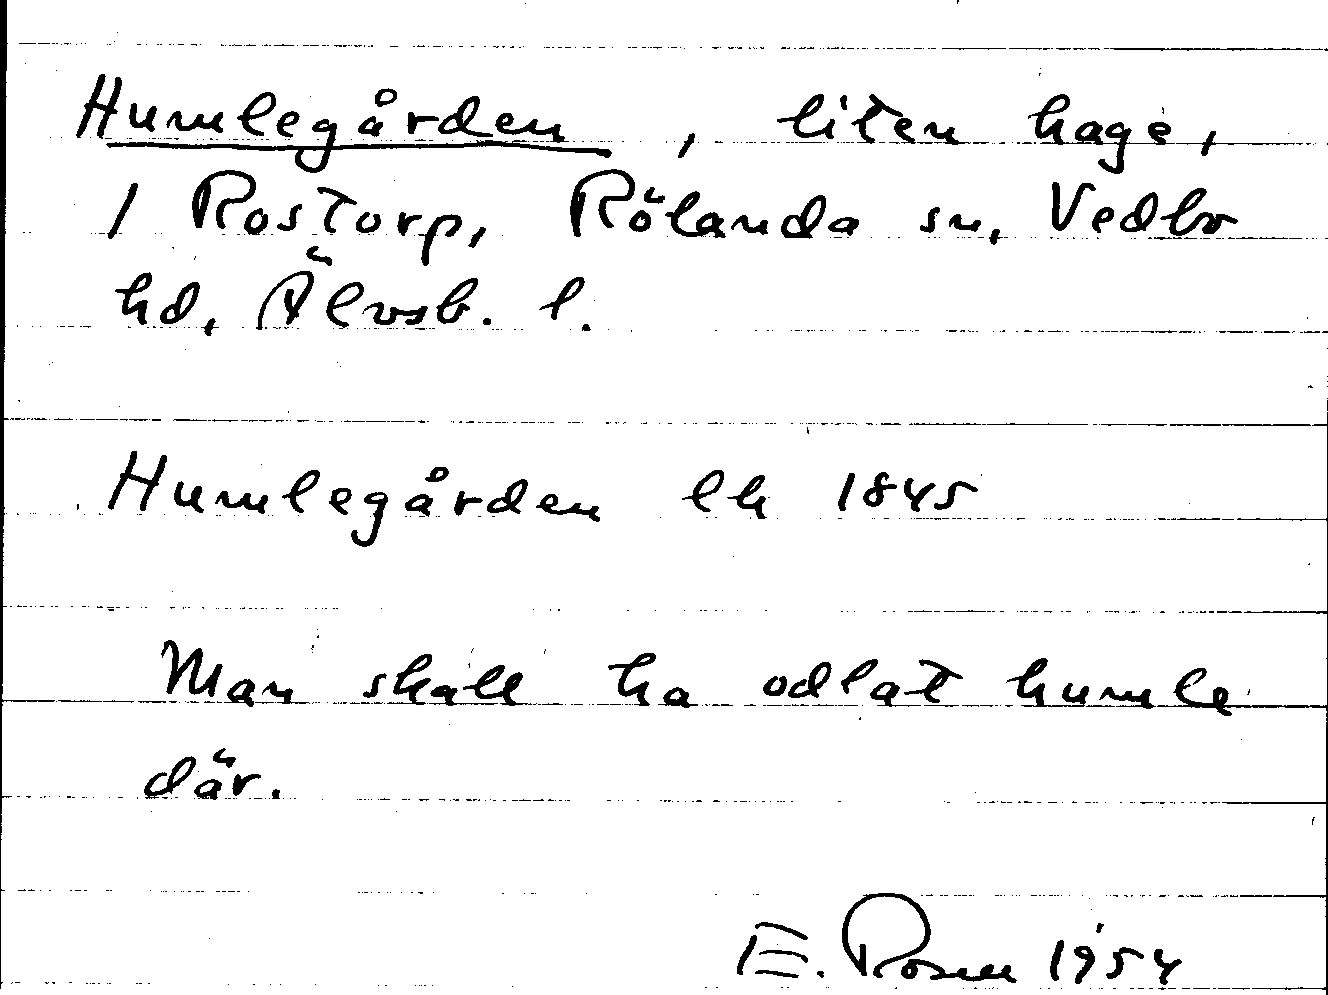 Humlegården, liten hage,
1 Rostorp, Rölanda sn, Vedbo
hd, Älvsb. l.
Humlegården lh 1845
Man skall ha odlat humle
där.
E. Rosen 1954